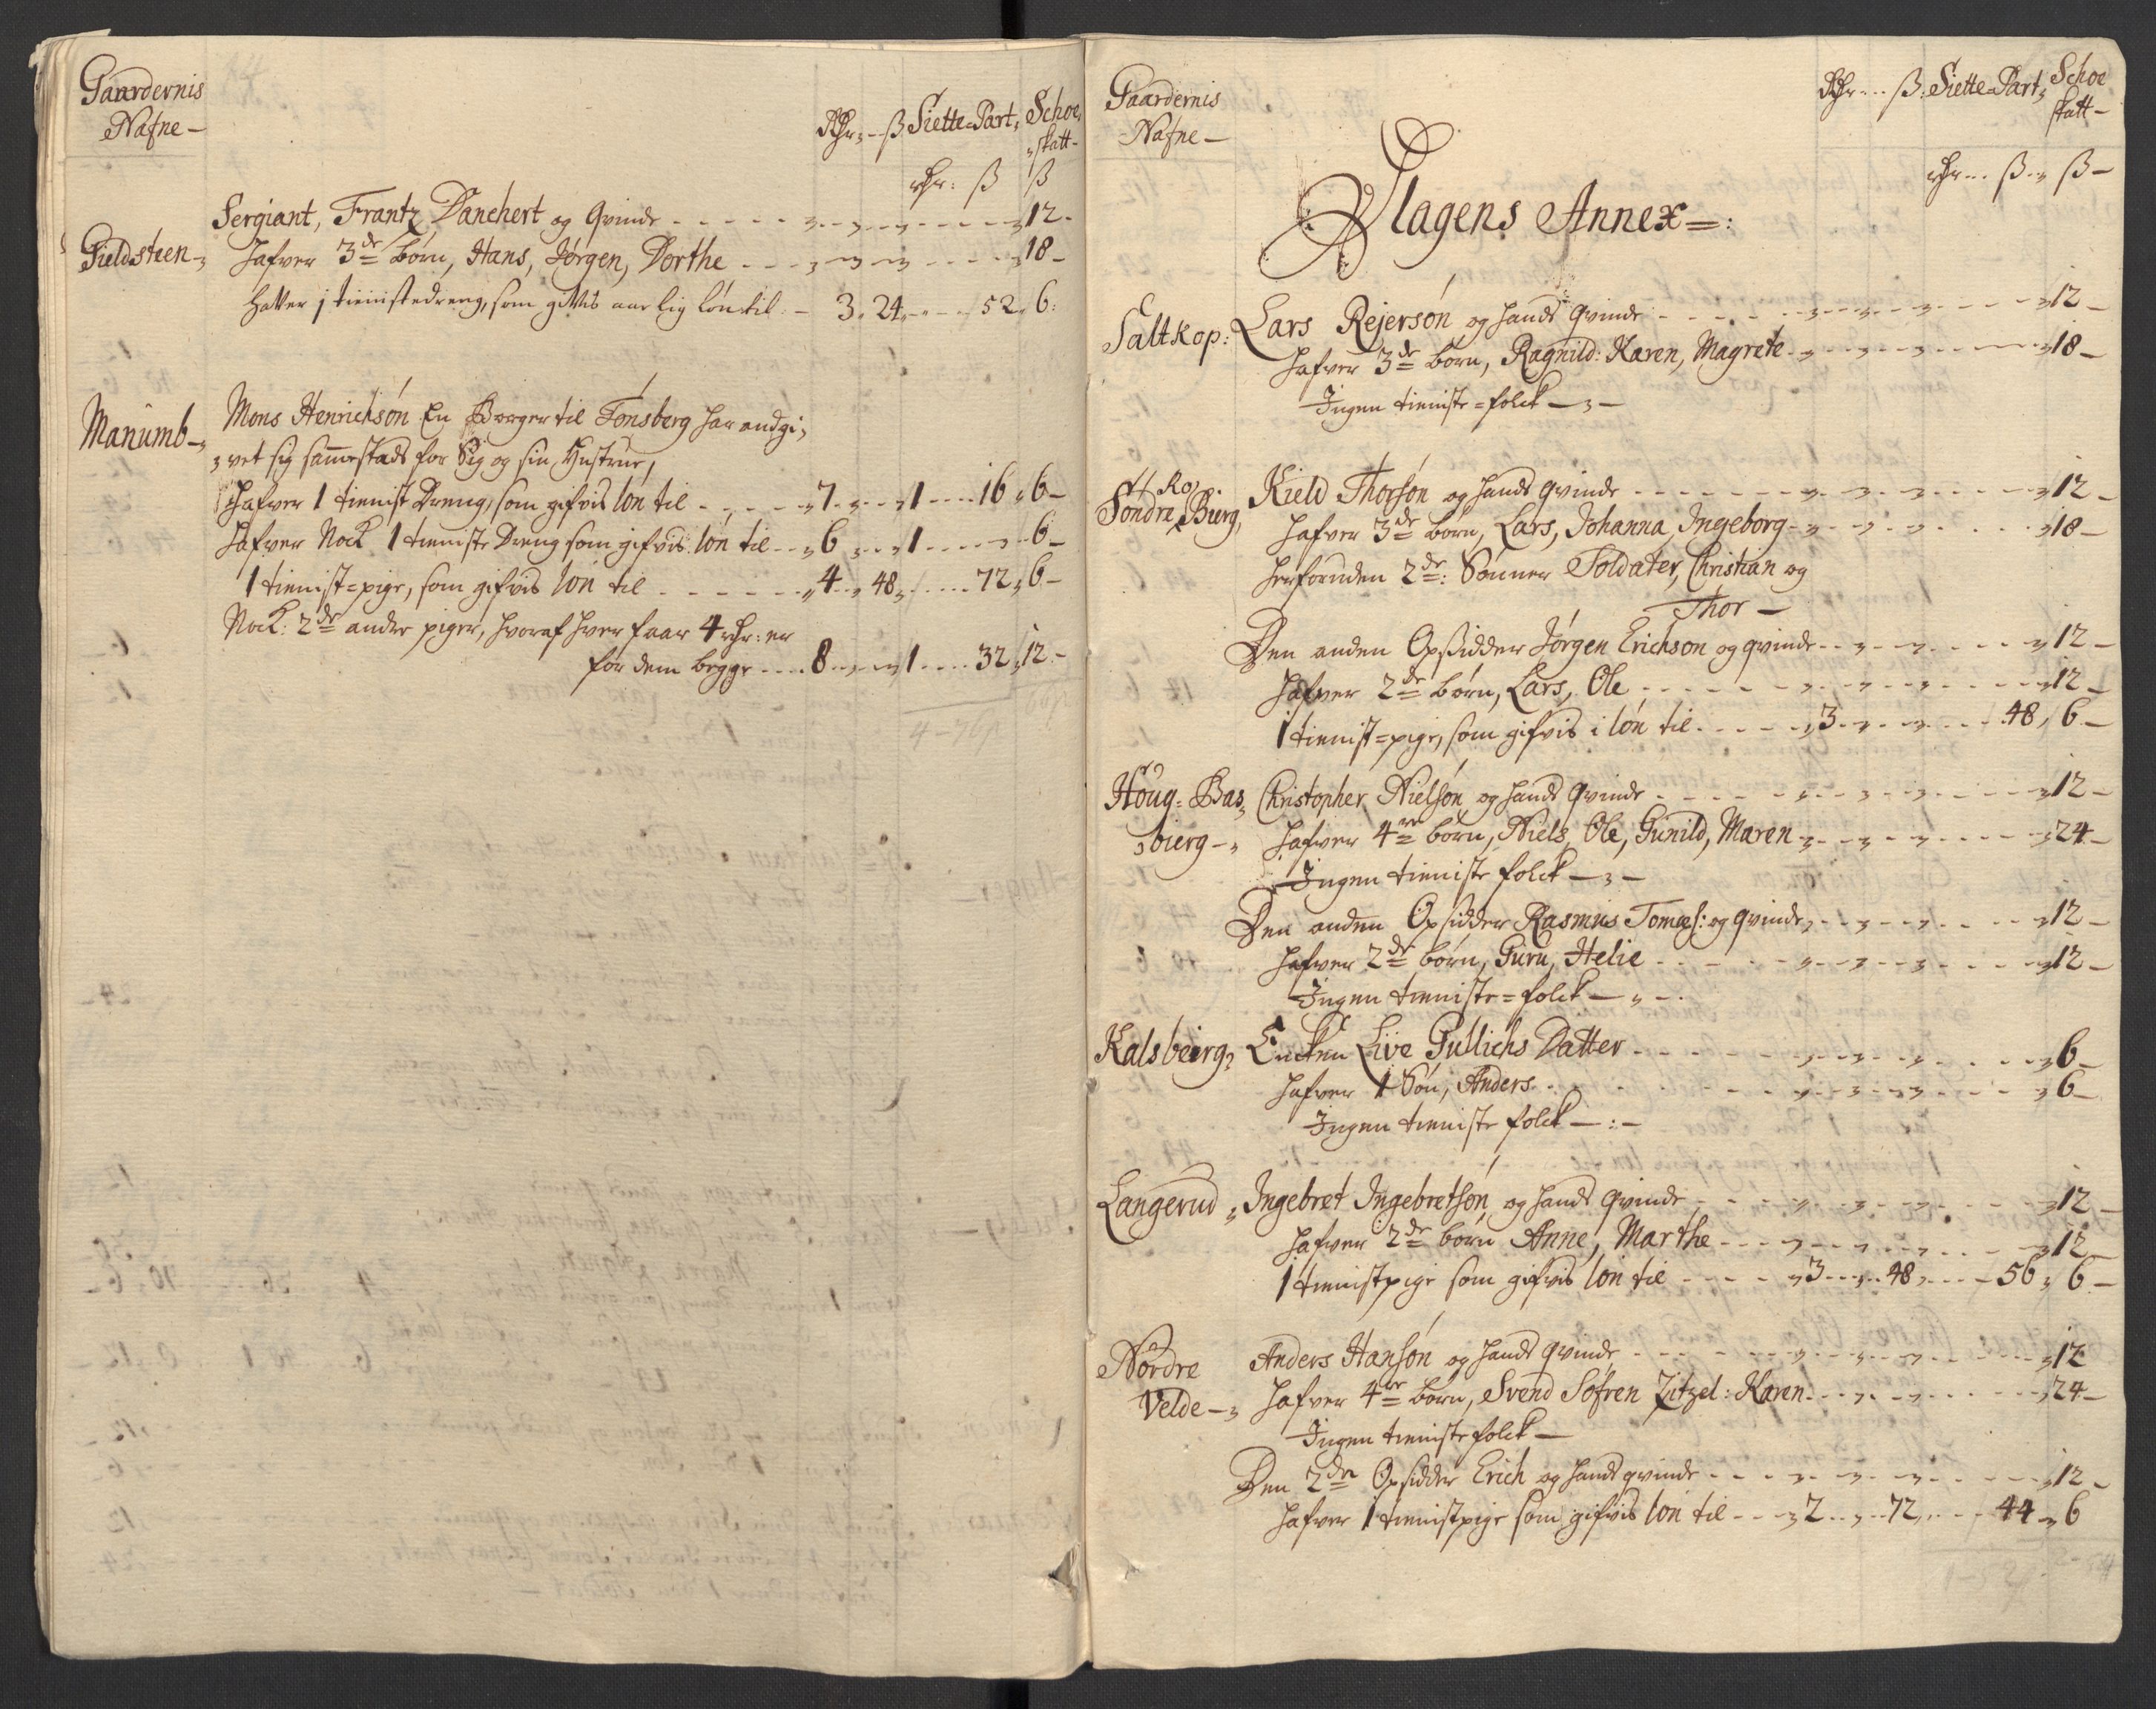 Gaardernis
Nafne —
Rdr: ß Siette=Part, Schoe
skatt-
rdr: ß ß
Sergiant, Frantz Danchert og Qvinde 12-
Gieldsteen Hafver 3de børn, Hans, Jørgen, Dorthe 18-
Hafver 1 tienistedreng, som gifvis aarlig løn til 3. 24 52. 6:
Manumb Mons Henrichsøn En Borger til Tønsberg har andgi-
vet sig sammestads for Sig og sin Hustrue,
Hafver 1 tienist Dreng, som gifvis løn til 7 1 16. 6-
Hafver Nock 1 tieniste Dreng som gifvis løn til 6 1 6-
1 tienist=pige, som gifvis løn til 4. 48 72. 6-
Nock: 2de andre piger, hvoraf hver faar 4 rdr: er
for dem begge 8 1 32. 12-
4-76
Gaardernis
Nafne —
Rdr ß: Siette=Part, Schoe
skatt-
rdr ß ß-
Slagens Annex=:
Saltkop: Lars Rejersøn og hands Qvinde 12-
Hafver 3de børn, Ragnild: Karen, Magrete 18-
Ingen tieniste=folck
Ro
Søndre Bierg, Kield Thorsøn og hands Qvinde 12-
Hafver 3de børn, Lars, Johanna, Ingeborg 18-
herforuden 2de: Sønner Soldater, Christian og
Thor —
Den anden Opsidder Jørgen Erichson og qvinde 12-
Hafver 2de børn, Lars, Ole 12-
1 tienist=pige, som gifvis i løn til 3 48, 6-
Høug=Bas Christopher Nielsøn og hands Qvinde 12-
bierg Hafver 4re børn, Niels, Ole, Gunild, Maren 24-
Ingen tieniste folck
Den anden Opsidder Rasmus Tomæs: og qvinde 12-
Hafver 2de børn, Guru, Helie 12-
Ingen tieniste=folck
Kalsbeirg, Encken Live Gullichs Datter 6-
Hafver 1 Søn, Anders 6-
Ingen tieniste folck
Langerud, Ingebret Ingebretsøn og hands Qvinde 12-
Hafver 2de børn Anne, Marthe 12-
1 tienistpige som gifvis løn til 3 48 56, 6-
Nordre Anders Hansøn og hands qvinde 12
Velde Hafver 4re børn, Svend Søfren Zitzel: Karen 24-
Ingen tieniste folck —
Den 2den Opsidder Erich og hands qvinde 12-
Hafver 1 tienistpige som gifvis løn til 2 72 44, 6